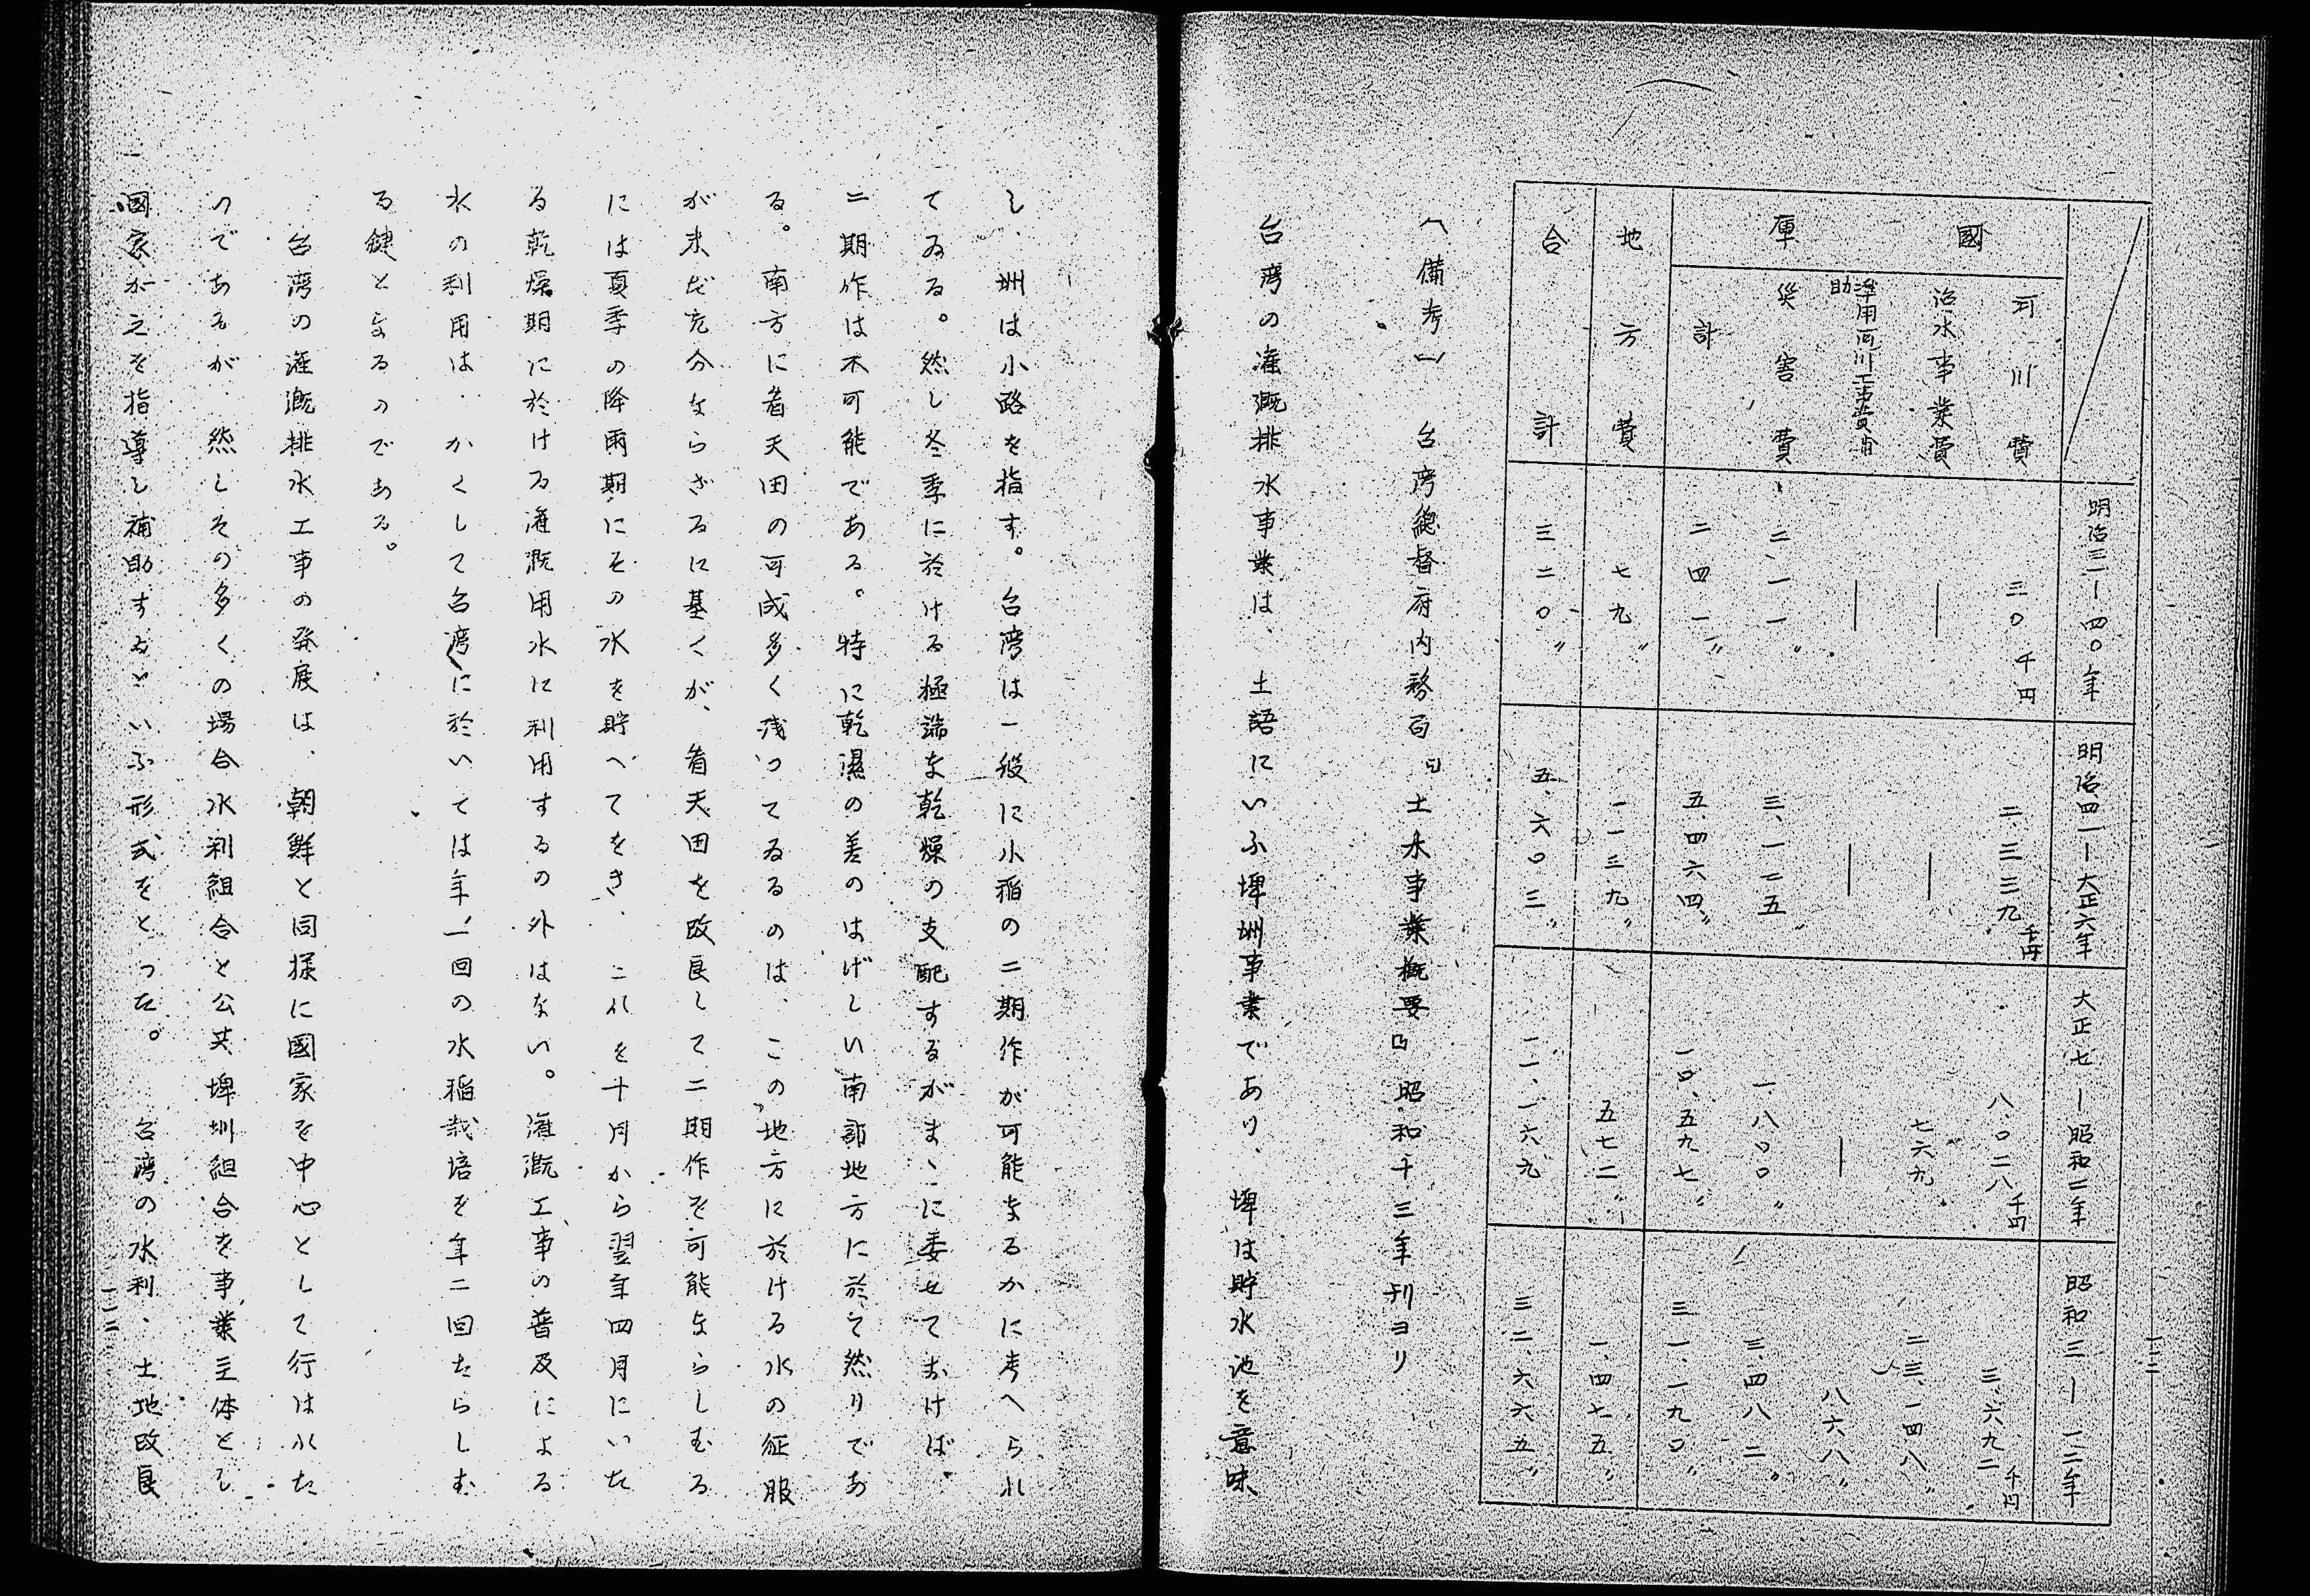 一二二
明治三一―四〇年
明治四一―大正六年
大正七―昭和二年
昭和三―一二年
國庫
河川費
三〇千円
二、三三九千円
八、〇二八千円
三、六九二千円
治水事業費
―
―
七六九
二三、一四八〃
準用河川工事費補助
―
―
―
八六八〃
災害費
二一一〃
三、一二五
一、八〇〇〃
三、四八二〃
計
二四一〃
五、四六四〃
一〇、五九七〃
三一、一九〇〃
地方費
七九〃
一三九〃
五七二〃
一、四七五〃
合計
三二〇〃
五、六〇三〃
一一、一六九
三二、六六五〃
(備考) 台湾總督府内務局『土木事業概要』昭和十三年刊ヨリ
台湾の灌漑排水事業は、土語にいふ埤圳事業であり、埤は貯水池を意味
し、圳は小路を指す。台湾は一般に水稲の二期作が可能なるかに考へられ
てゐる。然し冬季に於ける極端な乾燥の支配するがまゝに委せておけば、
二期作は不可能である。特に乾濕の差のはげしい南部地方に於て然りであ
る。南方に看天田の可成多く残つてゐるのは、この地方に於ける水の征服
が未だ充分ならざるに基くが、看天田を改良して二期作を可能ならしむる
には夏季の降雨期にその水を貯へてをき、これを十月から翌年四月にいた
る乾燥期に於ける灌漑用水に利用するの外はない。灌漑工事の普及による
水の利用は、かくして台湾に於いては年一回の水稲栽培を年二回たらしむ
る鍵となるのである。
台湾の灌漑排水工事の発展は、朝鮮と同様に國家を中心として行はれた
のであるが、然しその多くの場合水利組合と公共埤圳組合を事業主体とし
國家が之を指導し補助するといふ形式をとつた。台湾の水利、土地改良
一二三